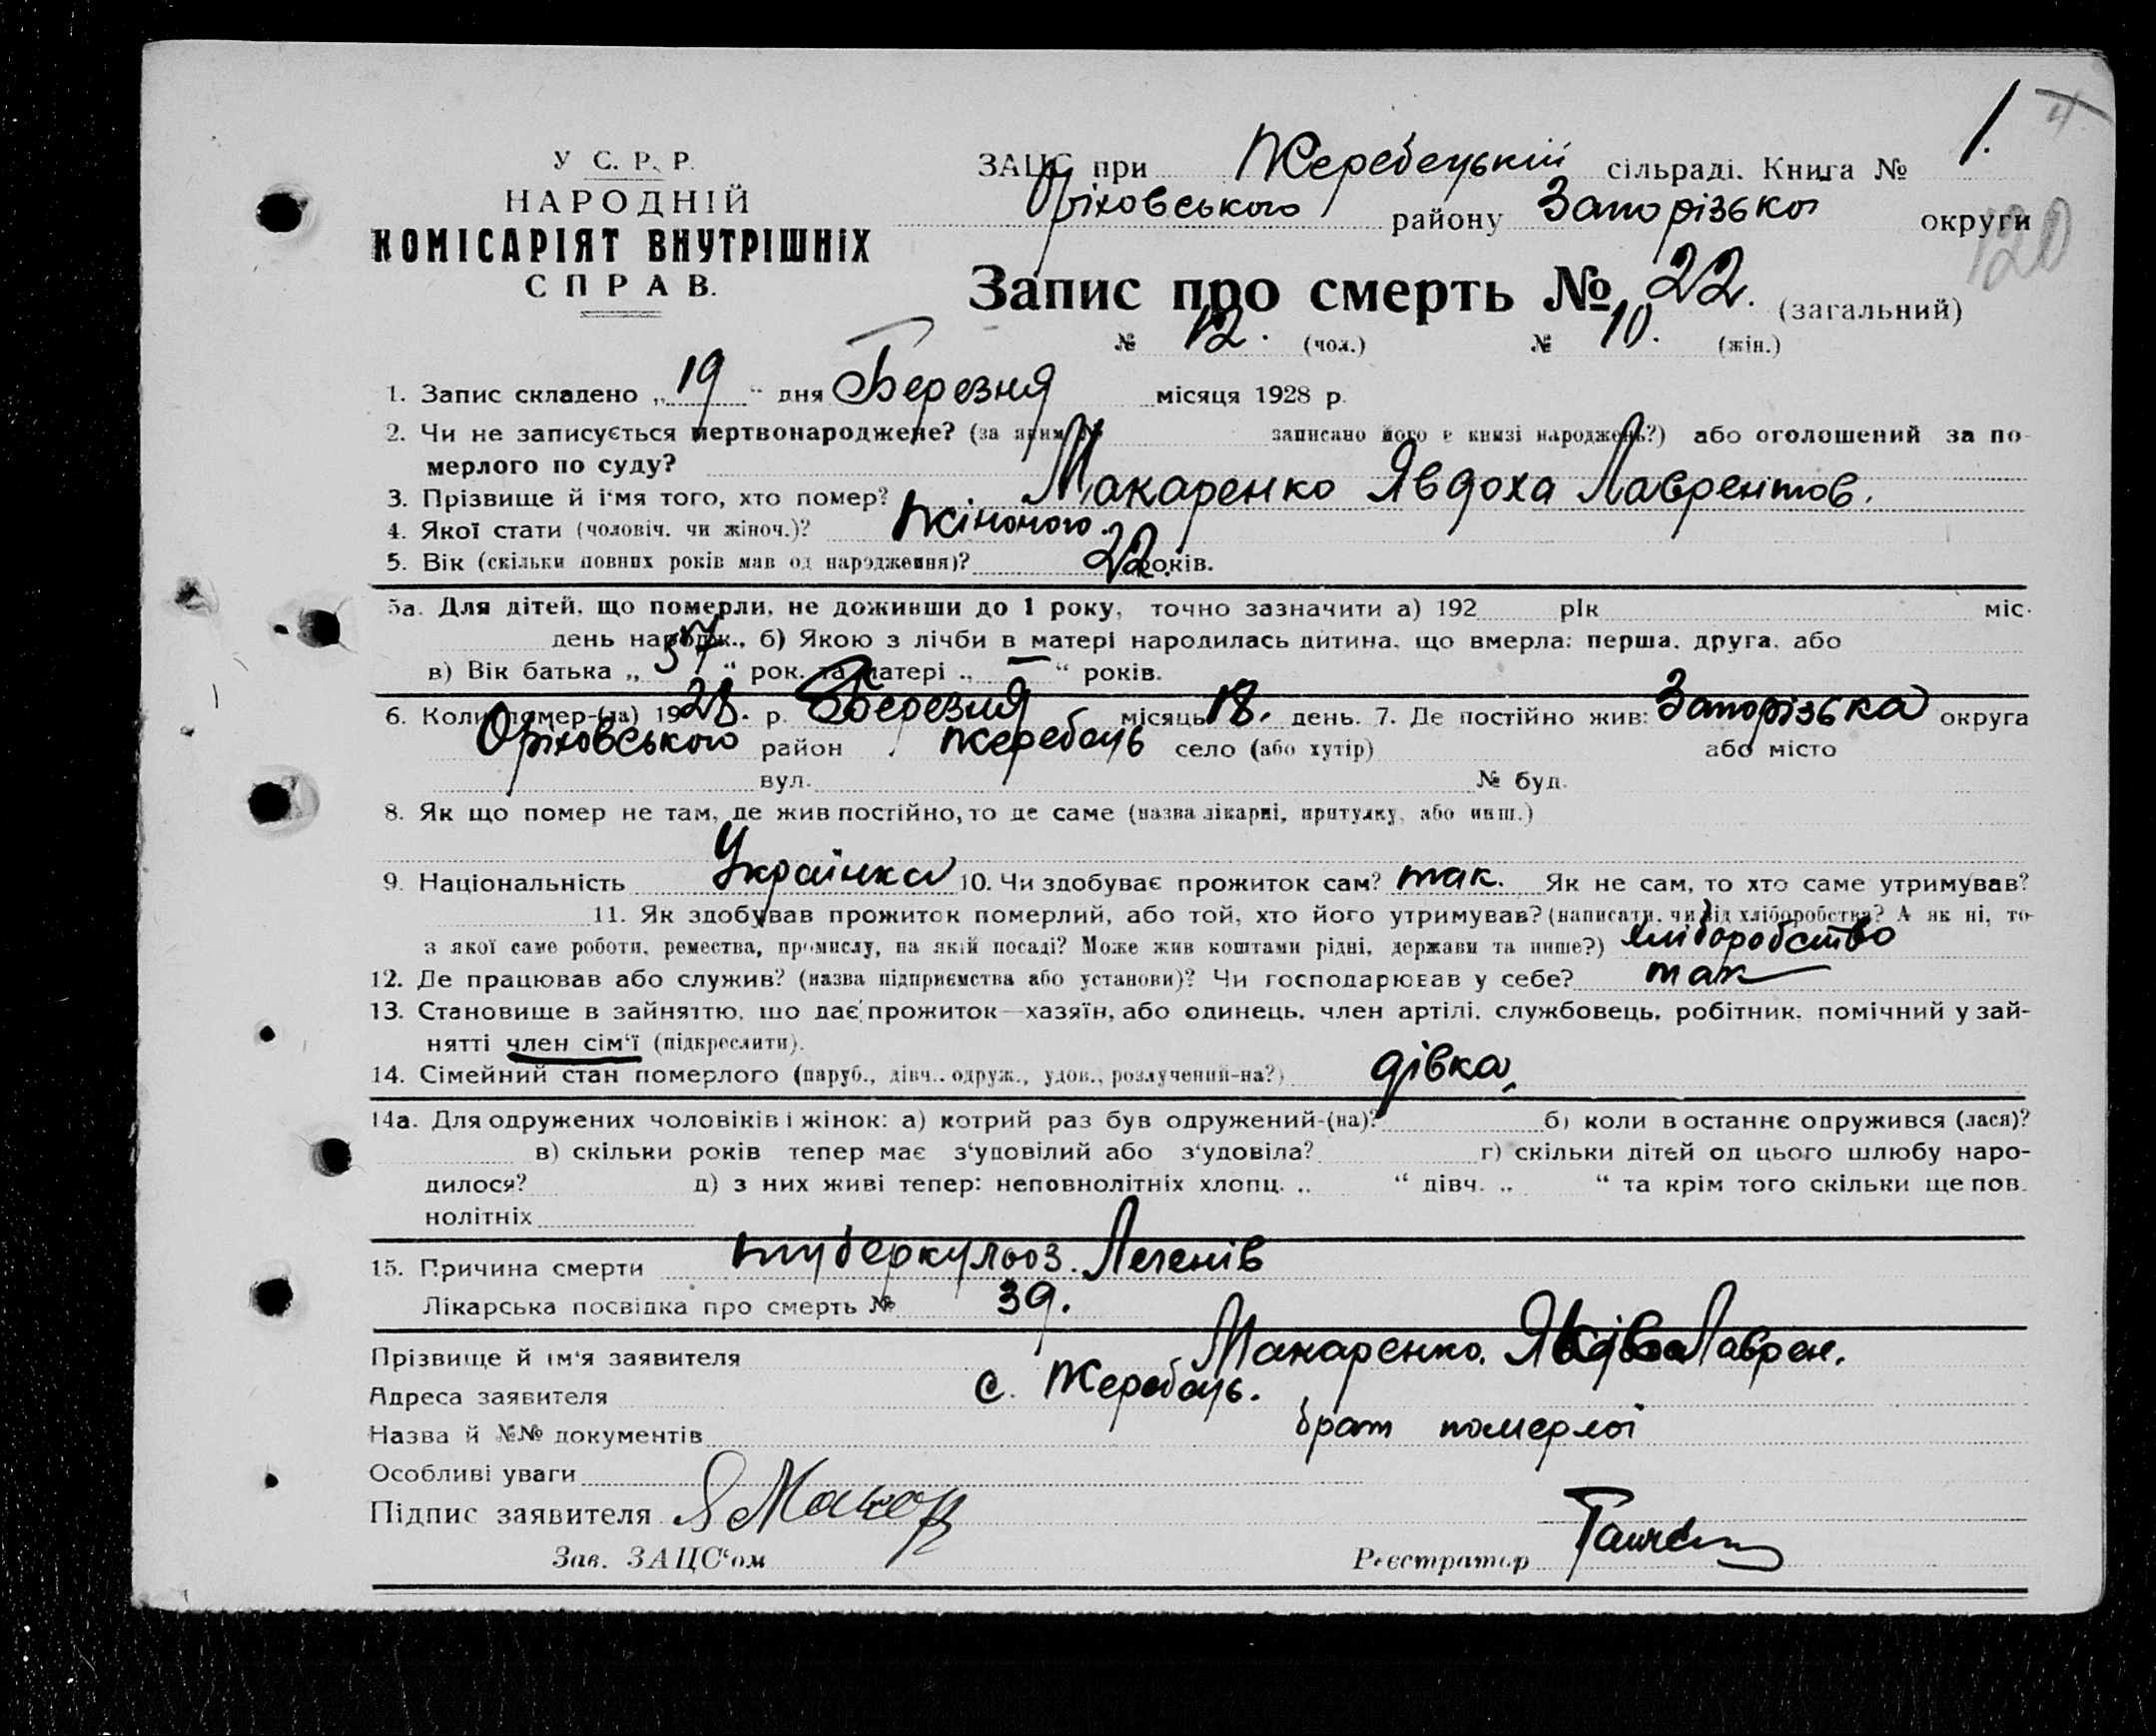 У С. Р. Р.
НАРОДНІЙ
КОМІСАРІЯТ ВНУТРІШНІХ
СПРАВ.
ЗАЦС при Жеребецькій сільраді. Книга № 1.
Оріховського району Запорізької округи
120
Запис про смерть № 22. (загальний)
№ 12. (чол.) № 10. (жін.)
1. Запис складено „19“ дня Березня місяця 1928 р.
2. Чи не записується мертвонароджене? (за яким № записано його в книзі народжень?) або оголошений за по-
мерлого по суду?
3. Прізвище й і'мя того, хто помер? Макаренко Явдоха Лаврентов.
4. Якої стати (чоловіч. чи жіноч.)? жіночого.
5. Вік (скільки повних років мав од народження)? 22. років.
5а. Для дітей, що померли, не доживши до 1 року, точно зазначити а) 192 рік міс.
день народж., б) Якою з лічби в матері народилась дитина, що вмерла: перша, друга, або
в) Вік батька „57“ рок. та матері „—“ років.
6. Коли помер-(ла) 1928. р. Березня місяць 18. день. 7. Де постійно жив: Запорізька округа
Оріховського район Жеребець село (або хутір) або місто
вул. № буд.
8. Як що помер не там, де жив постійно, то де саме (назва лікарні, притулку, або инш.)
9. Національність Українка 10. Чи здобуває прожиток сам? так. Як не сам, то хто саме утримував?
11. Як здобував прожиток померлий, або той, хто його утримував? (написати, чи від хліборобства? А як ні, то
з якої саме роботи, ремества, промислу, на якій посаді? Може жив коштами рідні, держави та инше?) хліборобство
12. Де працював або служив? (назва підприємства або установи)? Чи господарював у себе? так
13. Становище в зайняттю, що дає прожиток—хазяїн, або одинець, член артілі, службовець, робітник, помічний у зай-
нятті член сім'ї (підкреслити).
14. Сімейний стан померлого (паруб., дівч., одруж., удов., розлучений-на?) дівка
14а. Для одружених чоловіків і жінок: а) котрий раз був одружений-(на)? б) коли востаннє одружився (лася)?
в) скільки років тепер має з'удовілий або з'удовіла? г) скільки дітей од цього шлюбу наро-
дилося? д) з них живі тепер: неповнолітніх хлопц. „ “ дівч. „ “ та крім того скільки ще пов.
нолітніх
15. Причина смерти туберкульоз. Легенів
Лікарська посвідка про смерть № 39.
Прізвище й ім'я заявителя Макаренко. Яків Лаврен.
Адреса заявителя с. Жеребець.
Назва й №№ документів брат померлої
Особливі уваги
Підпис заявителя Я Макар
Зав. ЗАЦС'ом Реєстратор